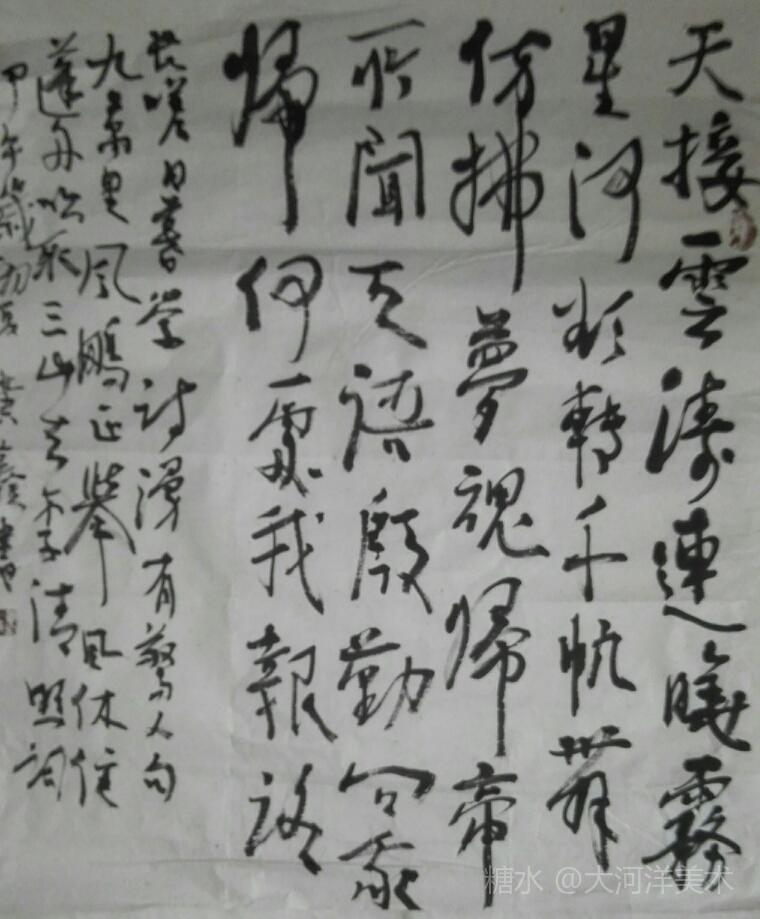 天接雲濤連曉霧
星河欲轉千帆舞
仿拂夢魂歸帝
所聞天語殷勤問我
歸何處我報路
長嗟日暮学詩漫有驚人句
九萬里風鵬正舉風休住
蓬舟吹取三山去 李清照詞
甲午歲初夏 黄
糖水 @大河洋美术